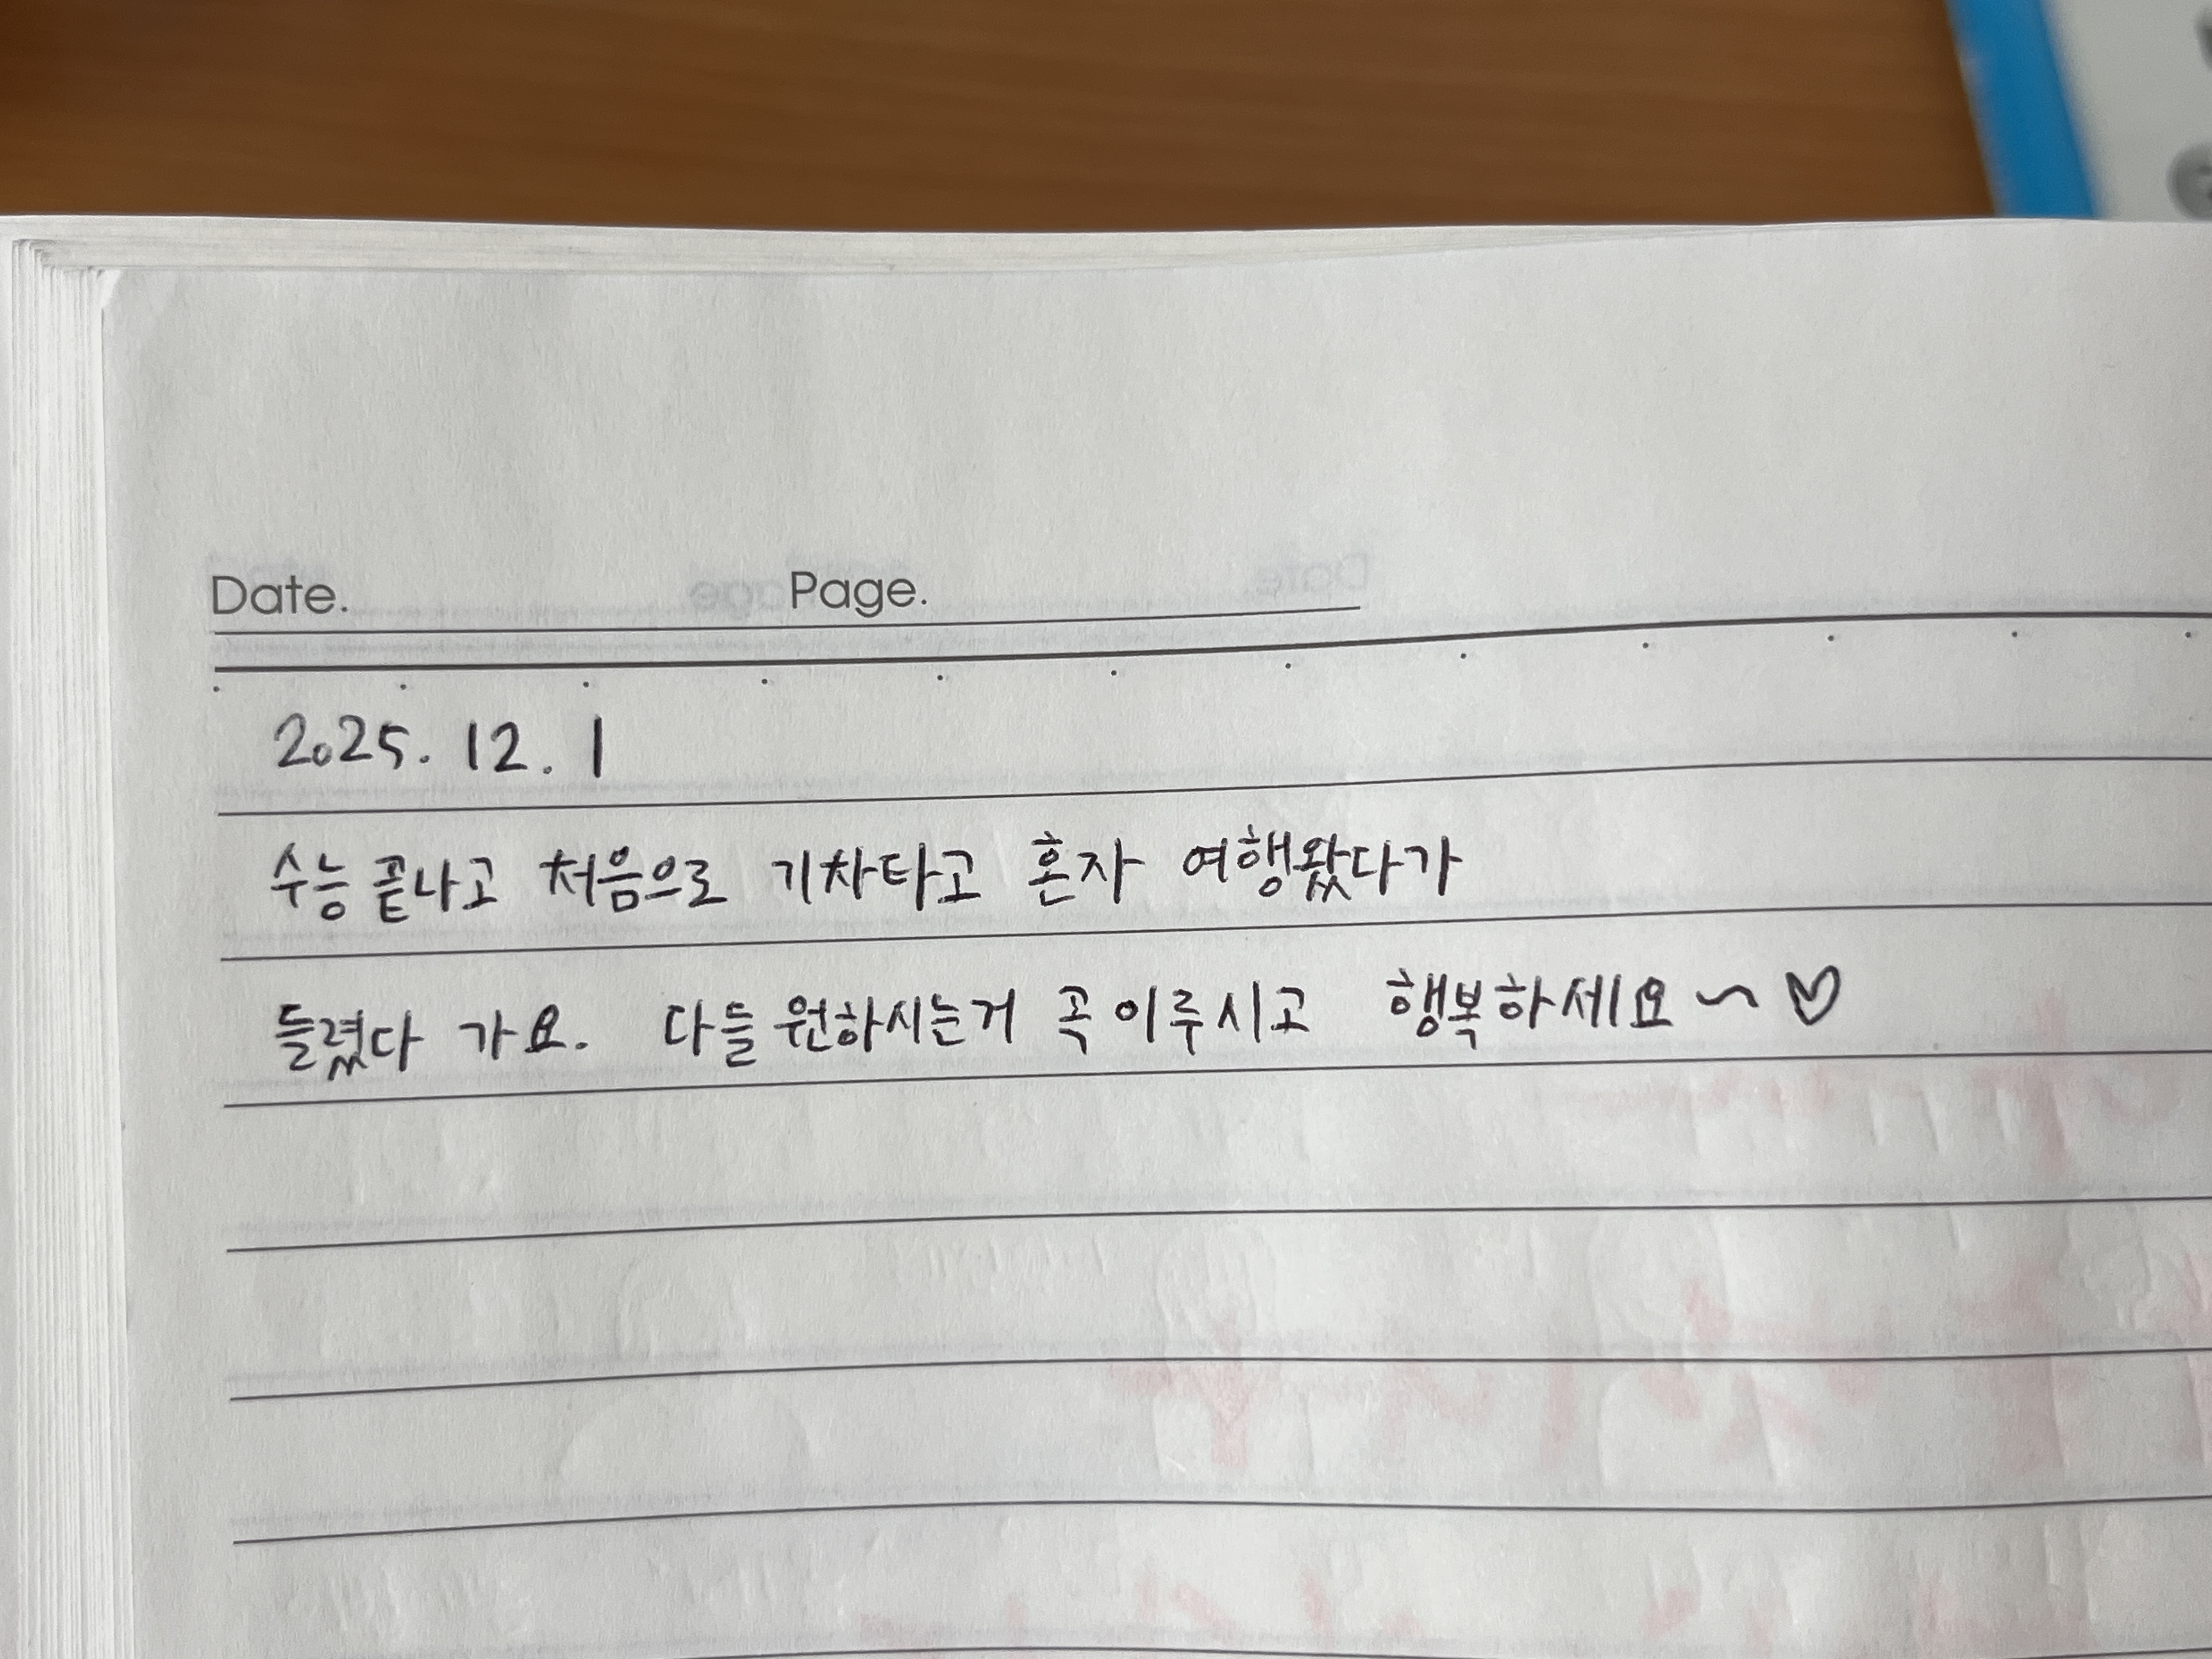 Date. Page.
2025. 12. 1
수능 끝나고 처음으로 기차타고 혼자 여행왔다가
들렸다 가요. 다들 원하시는거 곡 이루시고 행복하세요~♡